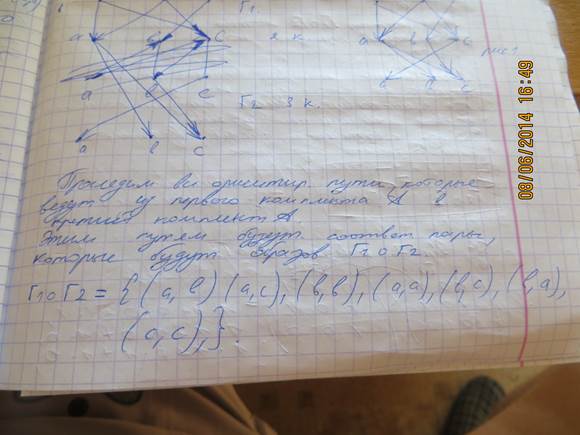 Г1
a b c 2 к. a b c
рис 1
a b c a b c
Г2 3 к.
a b c
Проследим все ориентир. пути, которые
ведут из первого комплекта A в
третий комплект A
Этим путям будут соответ пары,
которые будут образов Г1 o Г2.
Г1 o Г2 = { (a, b) (a, c), (b, b), (a, a), (b, c), (b, a),
(c, c), }.
08/06/2014 16:49